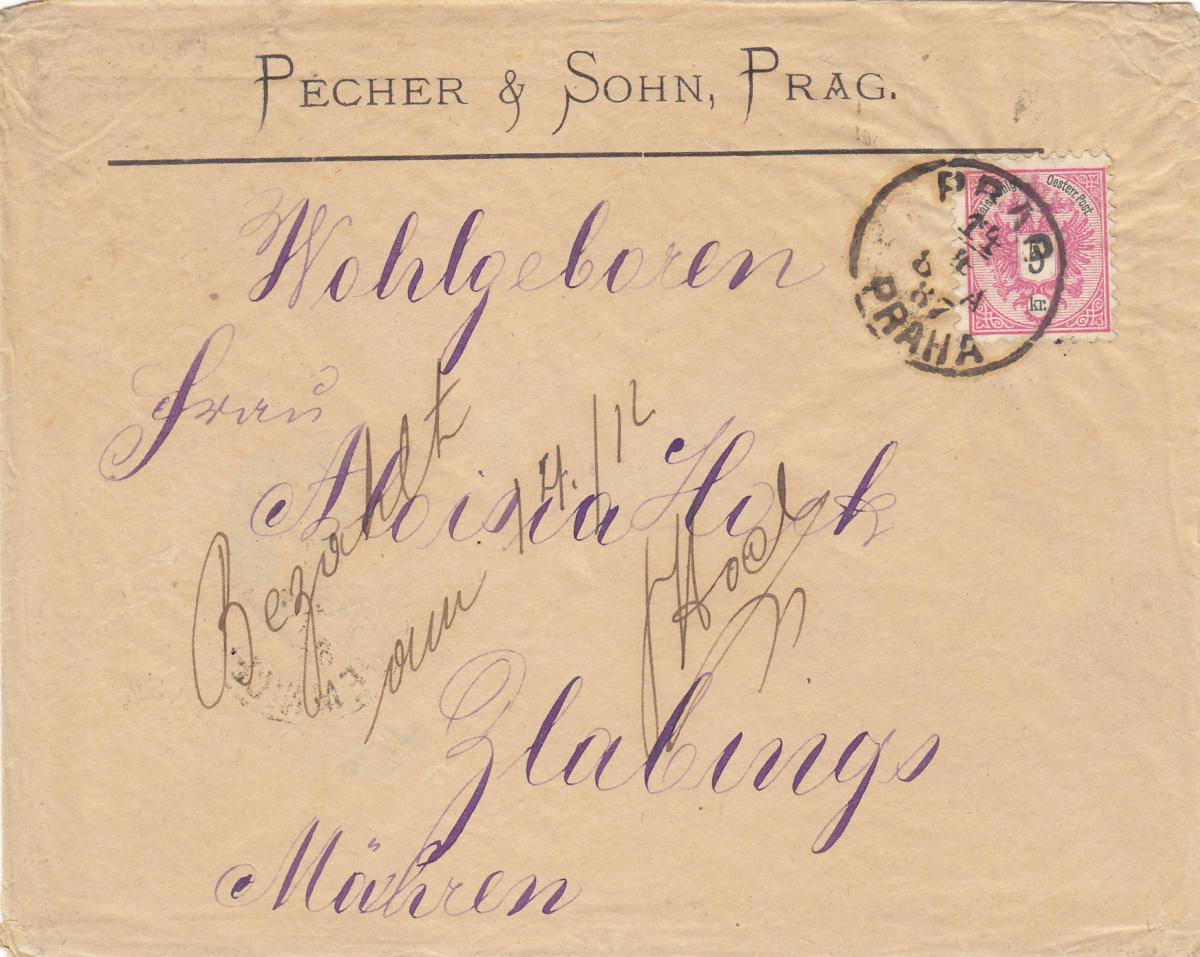 PECHER & SOHN, PRAG.
Oesterr. Post.
5
kr.
PRAG
PRAHA
Wohlgeboren
Frau
Aloisia Hock
Bezahlt
am 14./12
Hock
Zlabings
Mähren